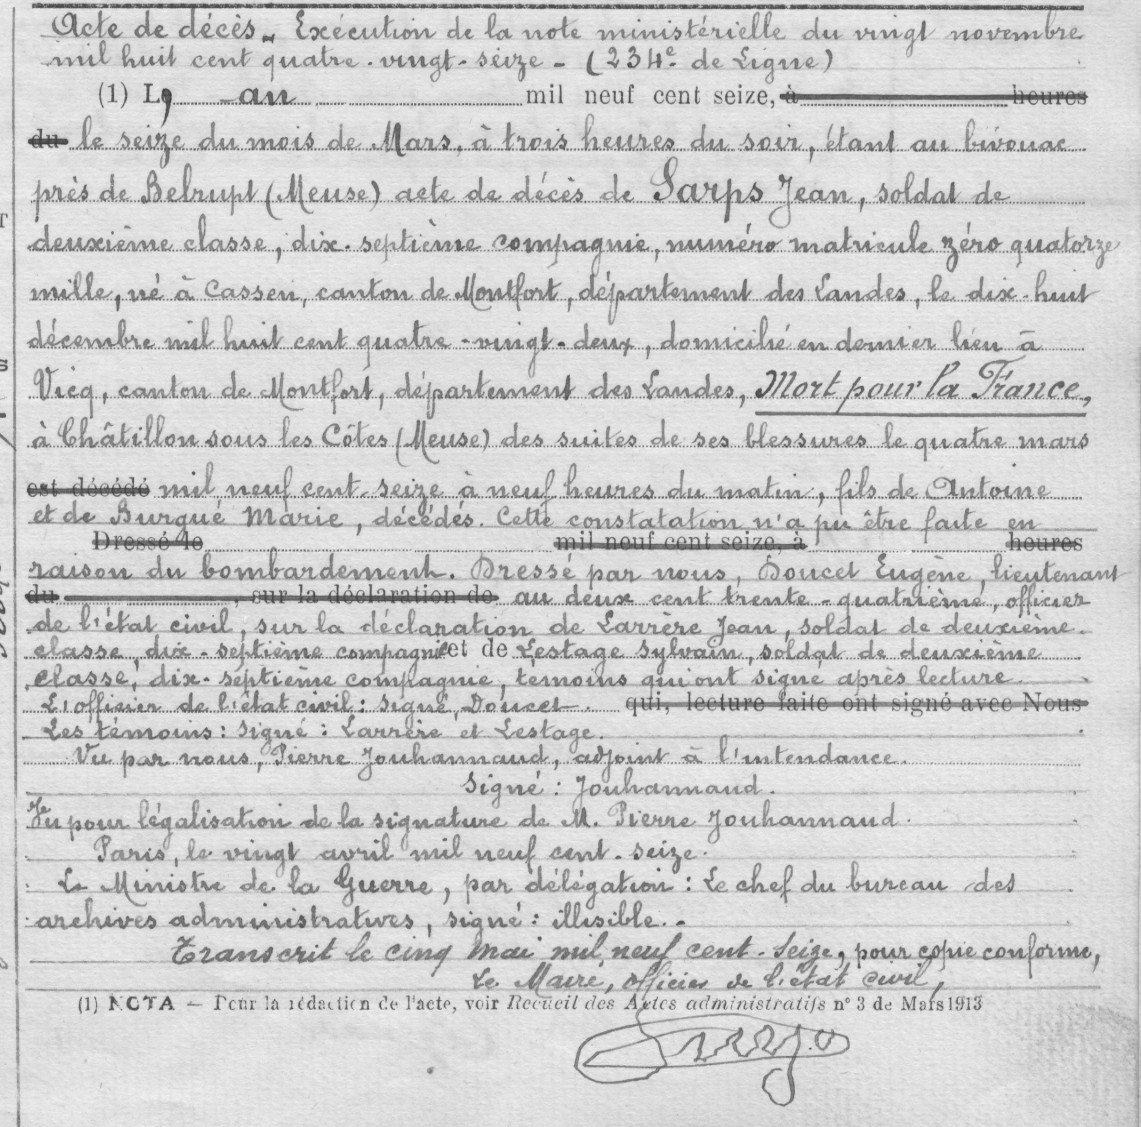 Acte de décès - Exécution de la note ministérielle du vingt novembre
mil huit cent quatre-vingt-seize - (234e de Ligne)
(1) L' an mil neuf cent seize, à heures
du le seize du mois de Mars, à trois heures du soir, étant au bivouac
près de Belrupt (Meuse) acte de décès de Sarps Jean, soldat de
deuxième classe, dix-septième compagnie, numéro matricule zéro quatorze
mille, né à Cassen, canton de Montfort, département des Landes, le dix-huit
décembre mil huit cent quatre-vingt-deux, domicilié en dernier lieu à
Vicq, canton de Montfort, département des Landes, Mort pour la France,
à Châtillon sous les Côtes (Meuse) des suites de ses blessures le quatre mars
est décédé mil neuf cent-seize à neuf heures du matin, fils de Antoine
et de Burgué Marie, décédés. Cette constatation n'a pu être faite en
Dressé le mil neuf cent seize, à heures
raison du bombardement. Dressé par nous, Doucet Eugène, lieutenant
du , sur la déclaration de au deux cent trente-quatrième, officier
de l'état civil, sur la déclaration de Larrère Jean, soldat de deuxième
classe, dix-septième compagnie et de Lestage Sylvain, soldat de deuxième
classe, dix-septième compagnie, temoins qui ont signé après lecture
L'officier de l'état civil: signé, Doucet. qui, lecture faite ont signé avec Nous
Les témoins: signé: Larrère et Lestage.
Vu par nous, Pierre Jouhannaud, adjoint à l'intendance.
Signé: Jouhannaud.
Vu pour légalisation de la signature de M. Pierre Jouhannaud.
Paris, le vingt avril mil neuf cent-seize.
Le Ministre de la Guerre, par délégation: Le chef du bureau des
archives administratives, signé: illisible. -
Transcrit le cinq mai mil neuf cent-seize, pour copie conforme,
Le Maire, officier de l'état civil,
(1) NOTA — Pour la rédaction de l'acte, voir Recueil des Actes administratifs n° 3 de Mars 1913